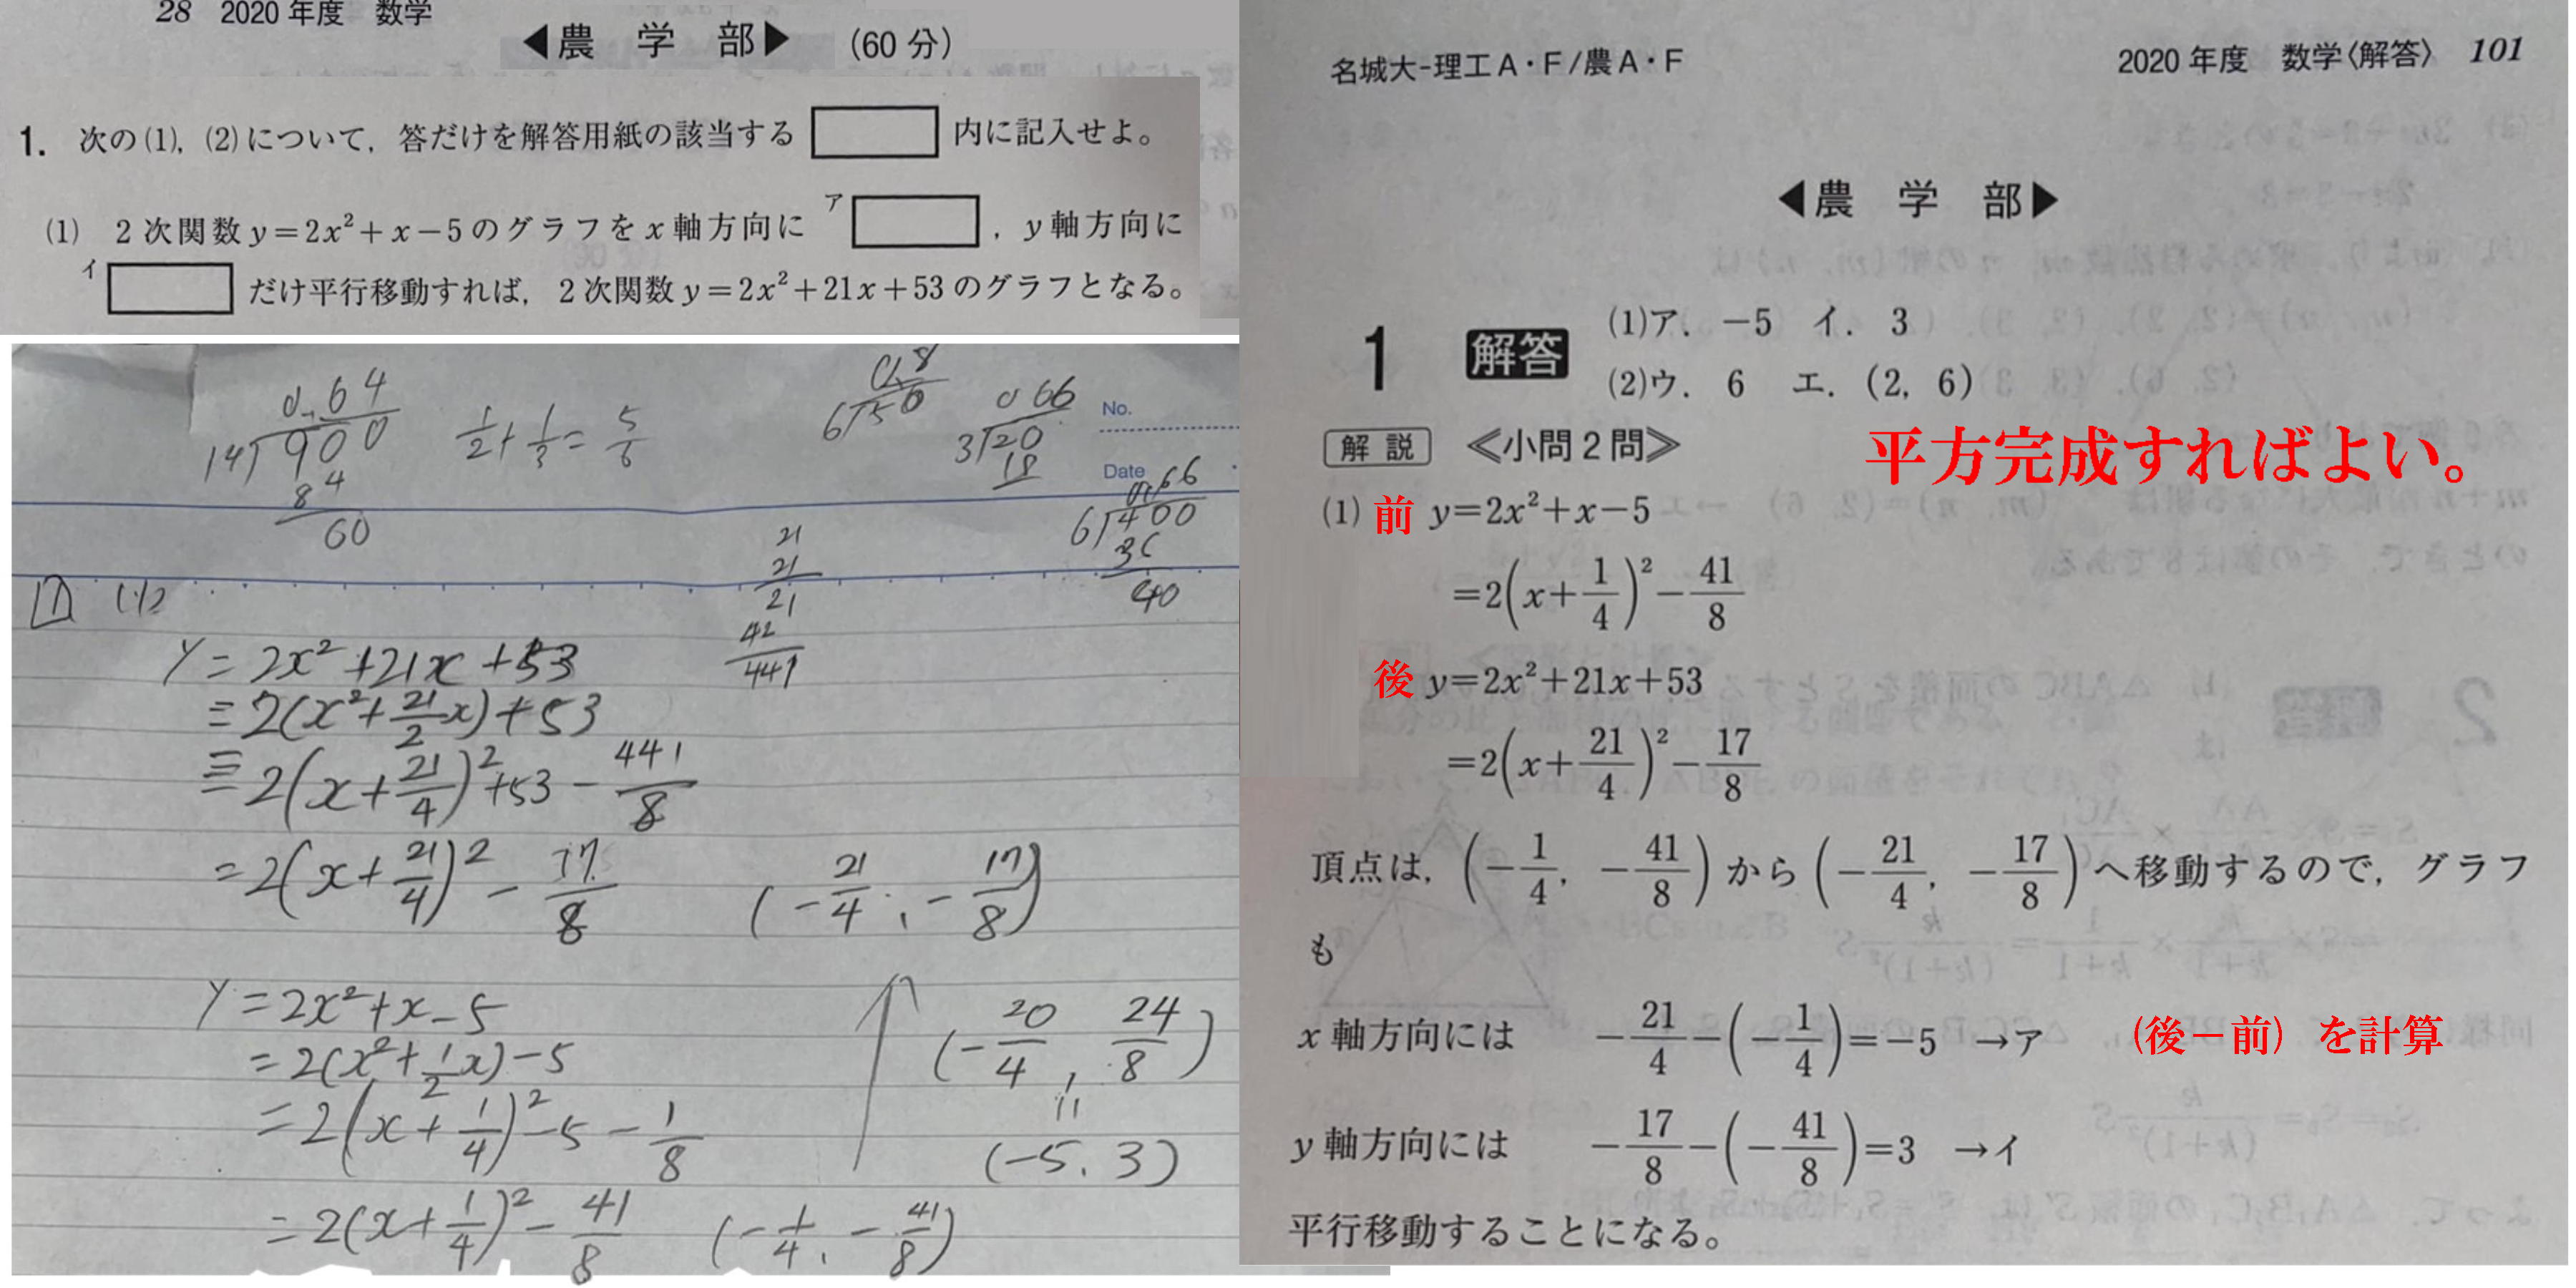 28 2020年度 数学
◀農 学 部▶ (60分)
1. 次の(1), (2)について, 答だけを解答用紙の該当する 内に記入せよ。
(1) 2次関数y=2x²+x−5のグラフをx軸方向に ア , y軸方向に
イ だけ平行移動すれば, 2次関数y=2x²+21x+53のグラフとなる。
0.64
14)900
84
60
1/2+1/3=5/6
0.8
6)50
0 66
3)20
18
No.
Date
0.66
6)400
36
40
21
21
21
42
441
1 (1)
y=2x²+21x+53
=2(x²+21/2x)+53
=2(x+21/4)²+53−441/8
=2(x+21/4)²−17/8 (−21/4, −17/8)
y=2x²+x−5
=2(x²+1/2x)−5
=2(x+1/4)²−5−1/8
=2(x+1/4)²−41/8 (−1/4, −41/8)
(−20/4, 24/8)
(−5, 3)
名城大-理工A・F/農A・F 2020年度 数学〈解答〉 101
◀農 学 部▶
1 解答 (1)ア. −5 イ. 3
(2)ウ. 6 エ. (2, 6)
解説 ≪小問2問≫ 平方完成すればよい。
(1) 前 y=2x²+x−5
=2(x+1/4)²−41/8
後 y=2x²+21x+53
=2(x+21/4)²−17/8
頂点は, (−1/4, −41/8)から(−21/4, −17/8)へ移動するので, グラフ
も
x軸方向には −21/4−(−1/4)=−5 →ア (後−前)を計算
y軸方向には −17/8−(−41/8)=3 →イ
平行移動することになる。